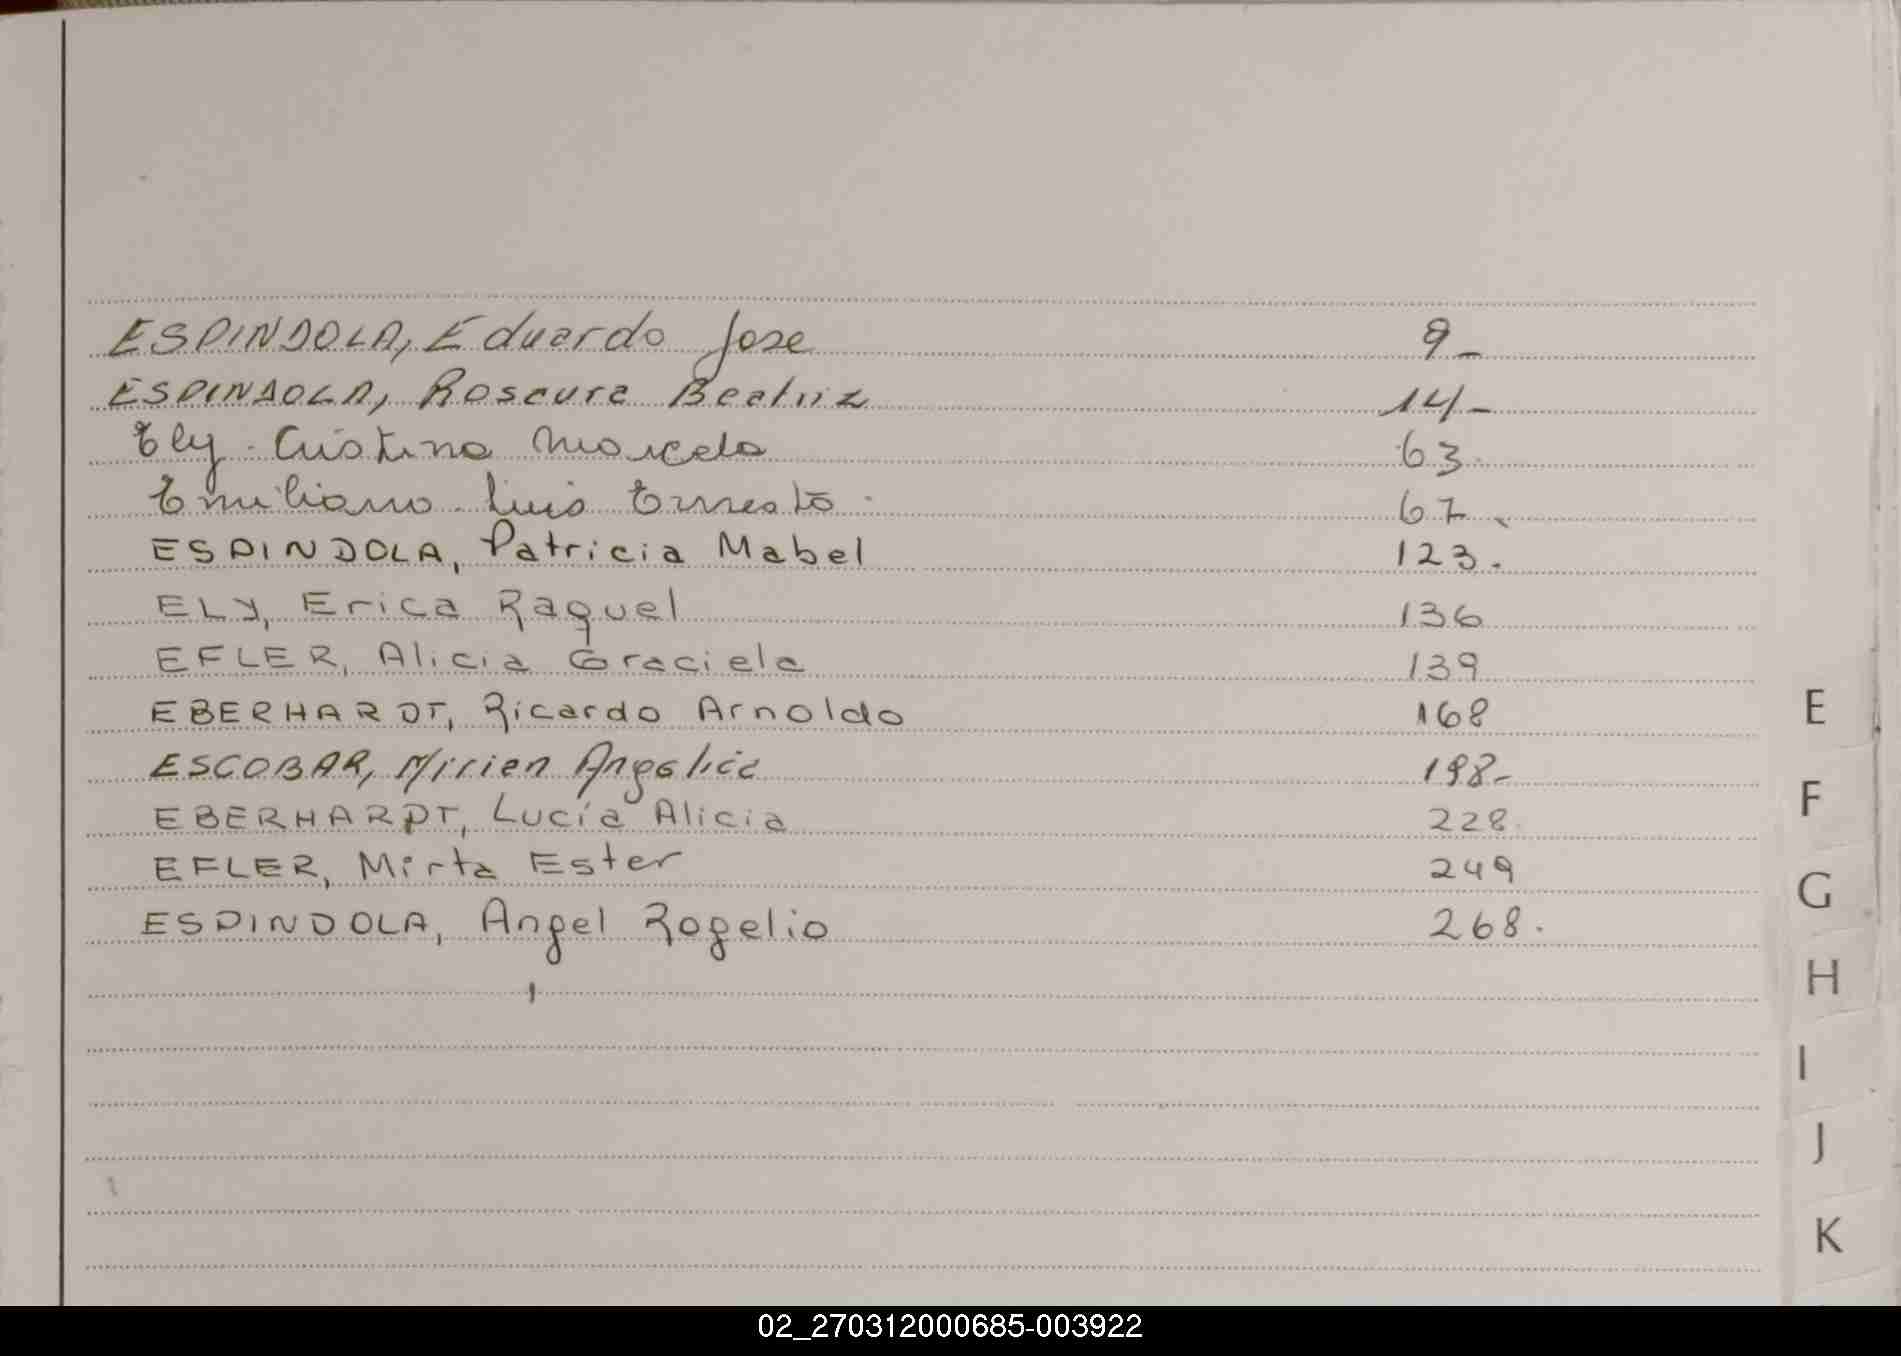 ESPINDOLA, Eduardo Jose 9-
ESPINDOLA, Rosaura Beatriz 14-
Ely. Cristina Marcela 63.
Emiliano. Luis Ernesto. 67.
ESPINDOLA, Patricia Mabel 123.
ELY, Erica Raquel 136
EFLER, Alicia Graciela 139
EBERHARDT, Ricardo Arnoldo 168
ESCOBAR, Mirien Angelica 198-
EBERHARDT, Lucía Alicia 228.
EFLER, Mirta Ester 249
ESPINDOLA, Angel Rogelio 268.
E
F
G
H
I
J
K
02_270312000685-003922